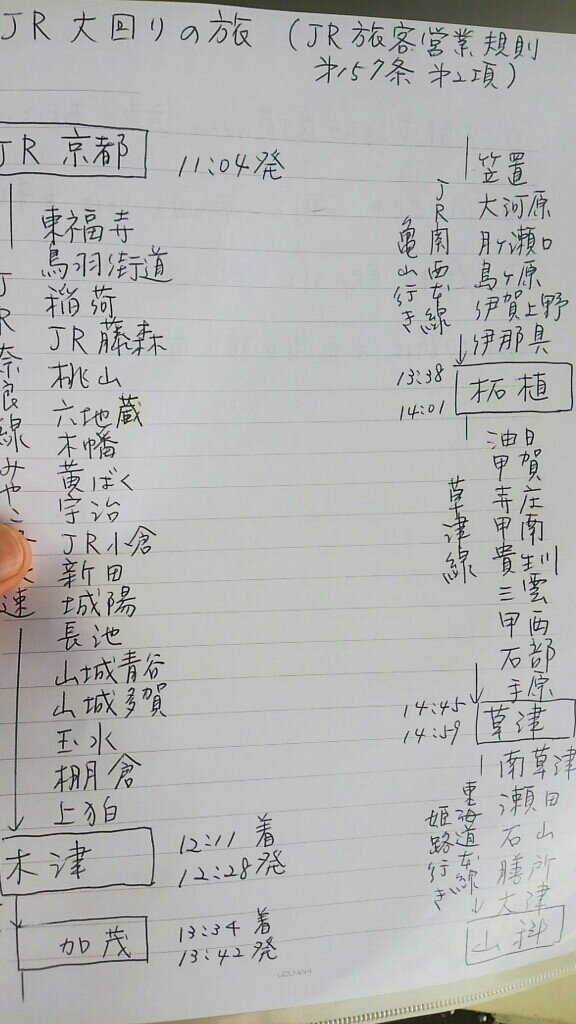 JR 大回りの旅 (JR 旅客営業規則
第157条 第2項)
JR 京都
11:04発
東福寺
鳥羽街道
稲荷
JR藤森
桃山
六地蔵
木幡
黄ばく
宇治
JR小倉
新田
城陽
長池
山城青谷
山城多賀
玉水
棚倉
上狛
JR奈良線みやこ
速
木津
12:11 着
12:28発
加茂
13:34 着
13:42発
笠置
大河原
月ヶ瀬口
島ヶ原
伊賀上野
伊那具
JR関西本線
亀山行き
13:38
14:01
柘植
油日
甲賀
寺庄
甲南
貴生川
三雲
甲西
石部
手原
草津線
14:45
14:59
草津
南草津
瀬田
石山
膳所
大津
東海道本線
姫路行き
山科